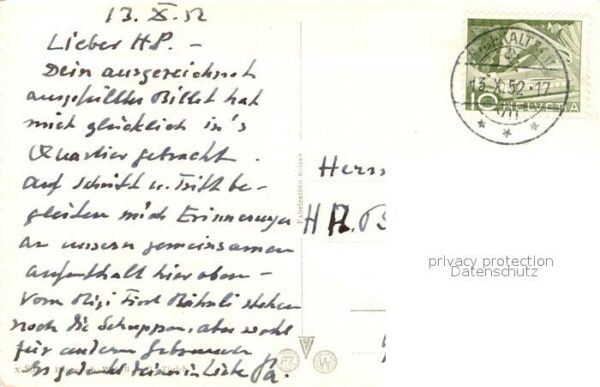 13. X. 52
Lieber HP. -
Dein ausgezeichnet
ausgefülltes Billet hat
mich glücklich in's
Quartier gebracht.
Auf Schritt u. Tritt be-
gleiten mich Erinnerungen
an unsern gemeinsamen
Aufenthalt hier oben -
Vom Rigi First stehen
noch die Schuppen, aber wohl
für andern Gebrauch
Es gedenkt deiner in Liebe Pa.
Fabrication suisse
Herrn
HP. B
KALTBAD
13.X.52.-17
10 HELVETIA
privacy protection
Datenschutz
W